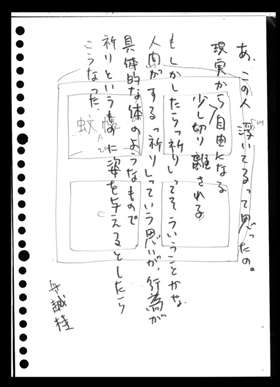 あ、この人 浮いてるって思ったの。
現実から自由になる
少し切り離される
もしかしたら「祈り」ってそういうことかな
人間がする「祈り」っていう思いが、行為が
具体的な体のようなもので
祈りというものに姿を与えるとしたら
こうなった。
舟越桂
蚊
A
C